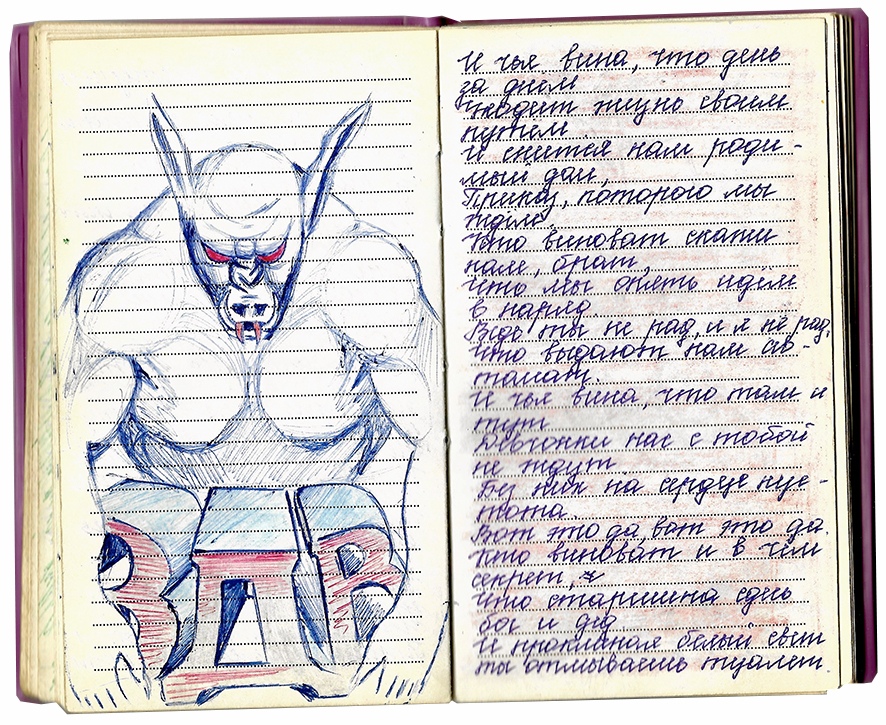 ВДВ
И чья вина, что день
за днём
Уходит жизнь своим
путём
И снится нам роди-
мый дом,
Приказ, которого мы
ждём
Кто виноват скажи
нам, брат,
Что мы опять идём
в наряд.
Ведь ты не рад, и я не рад,
Что выдают нам ав-
томат.
И чья вина, что там и
тут
Девчонки нас с тобой
не ждут
Без них на сердце пус-
тота.
Вот это да, вот это да.
Кто виноват и в чём
секрет,
Что старшина здесь
бог и дед
И проклиная белый свет
ты отмываешь туалет.